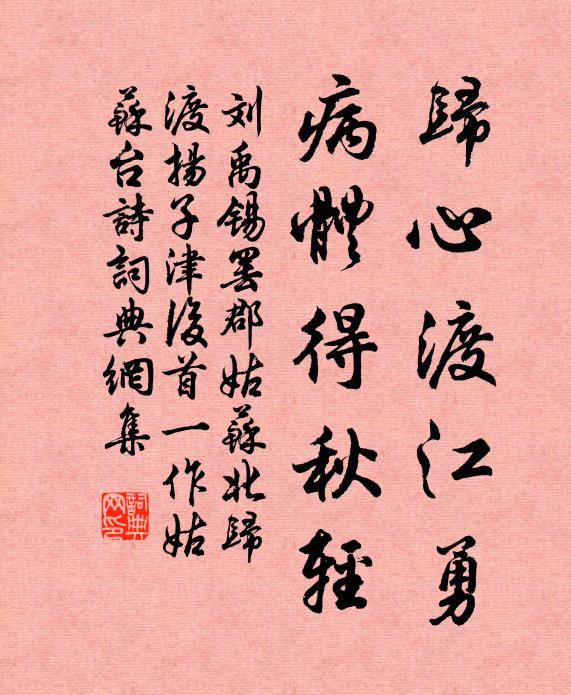 歸心渡江勇
病體得秋輕
刘禹锡罢郡姑蘇北歸
渡揚子津後首一作姑
蘇台詩詞典網集
詞典
网印